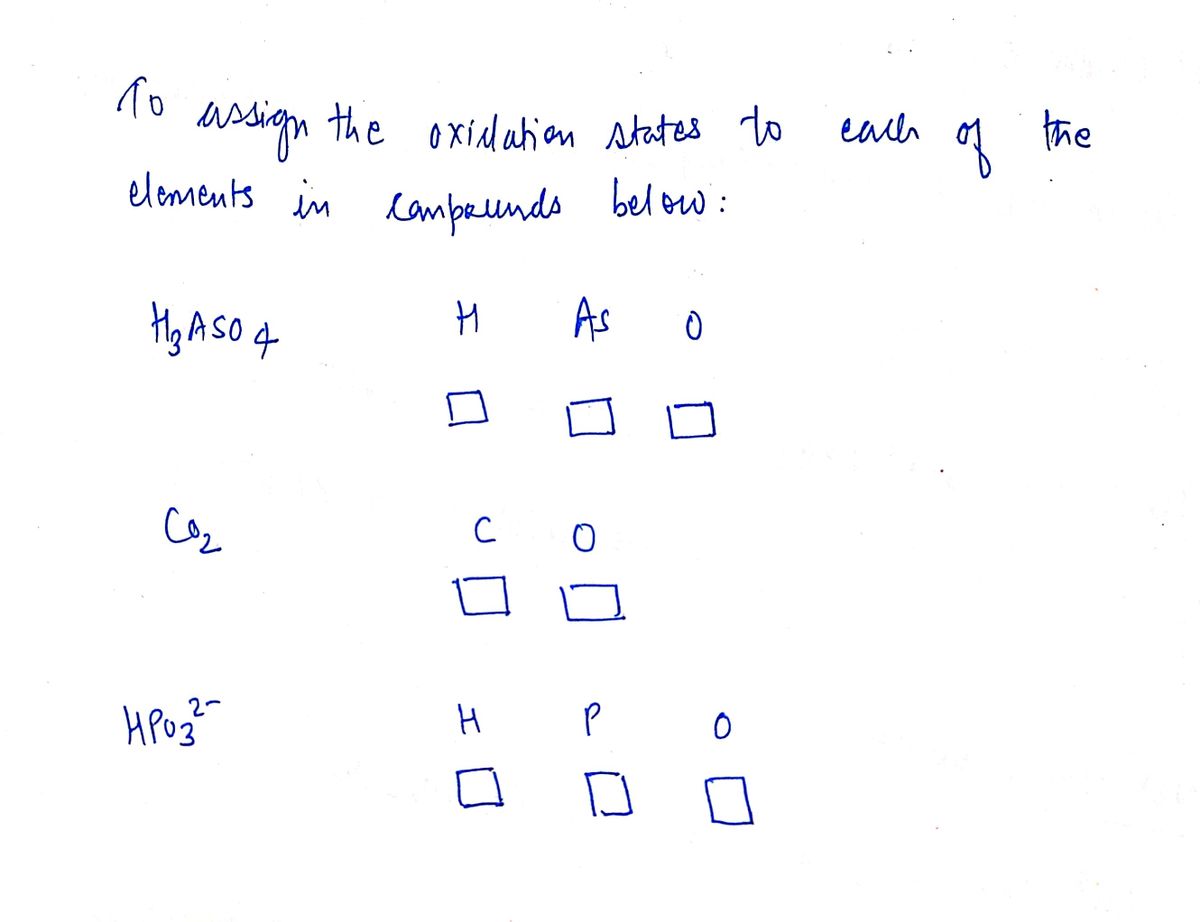 To assign the oxidation states to each of the
elements in compounds below:
H₃ASO₄ H As O
CO₂ C O
HPO₃²⁻ H P O